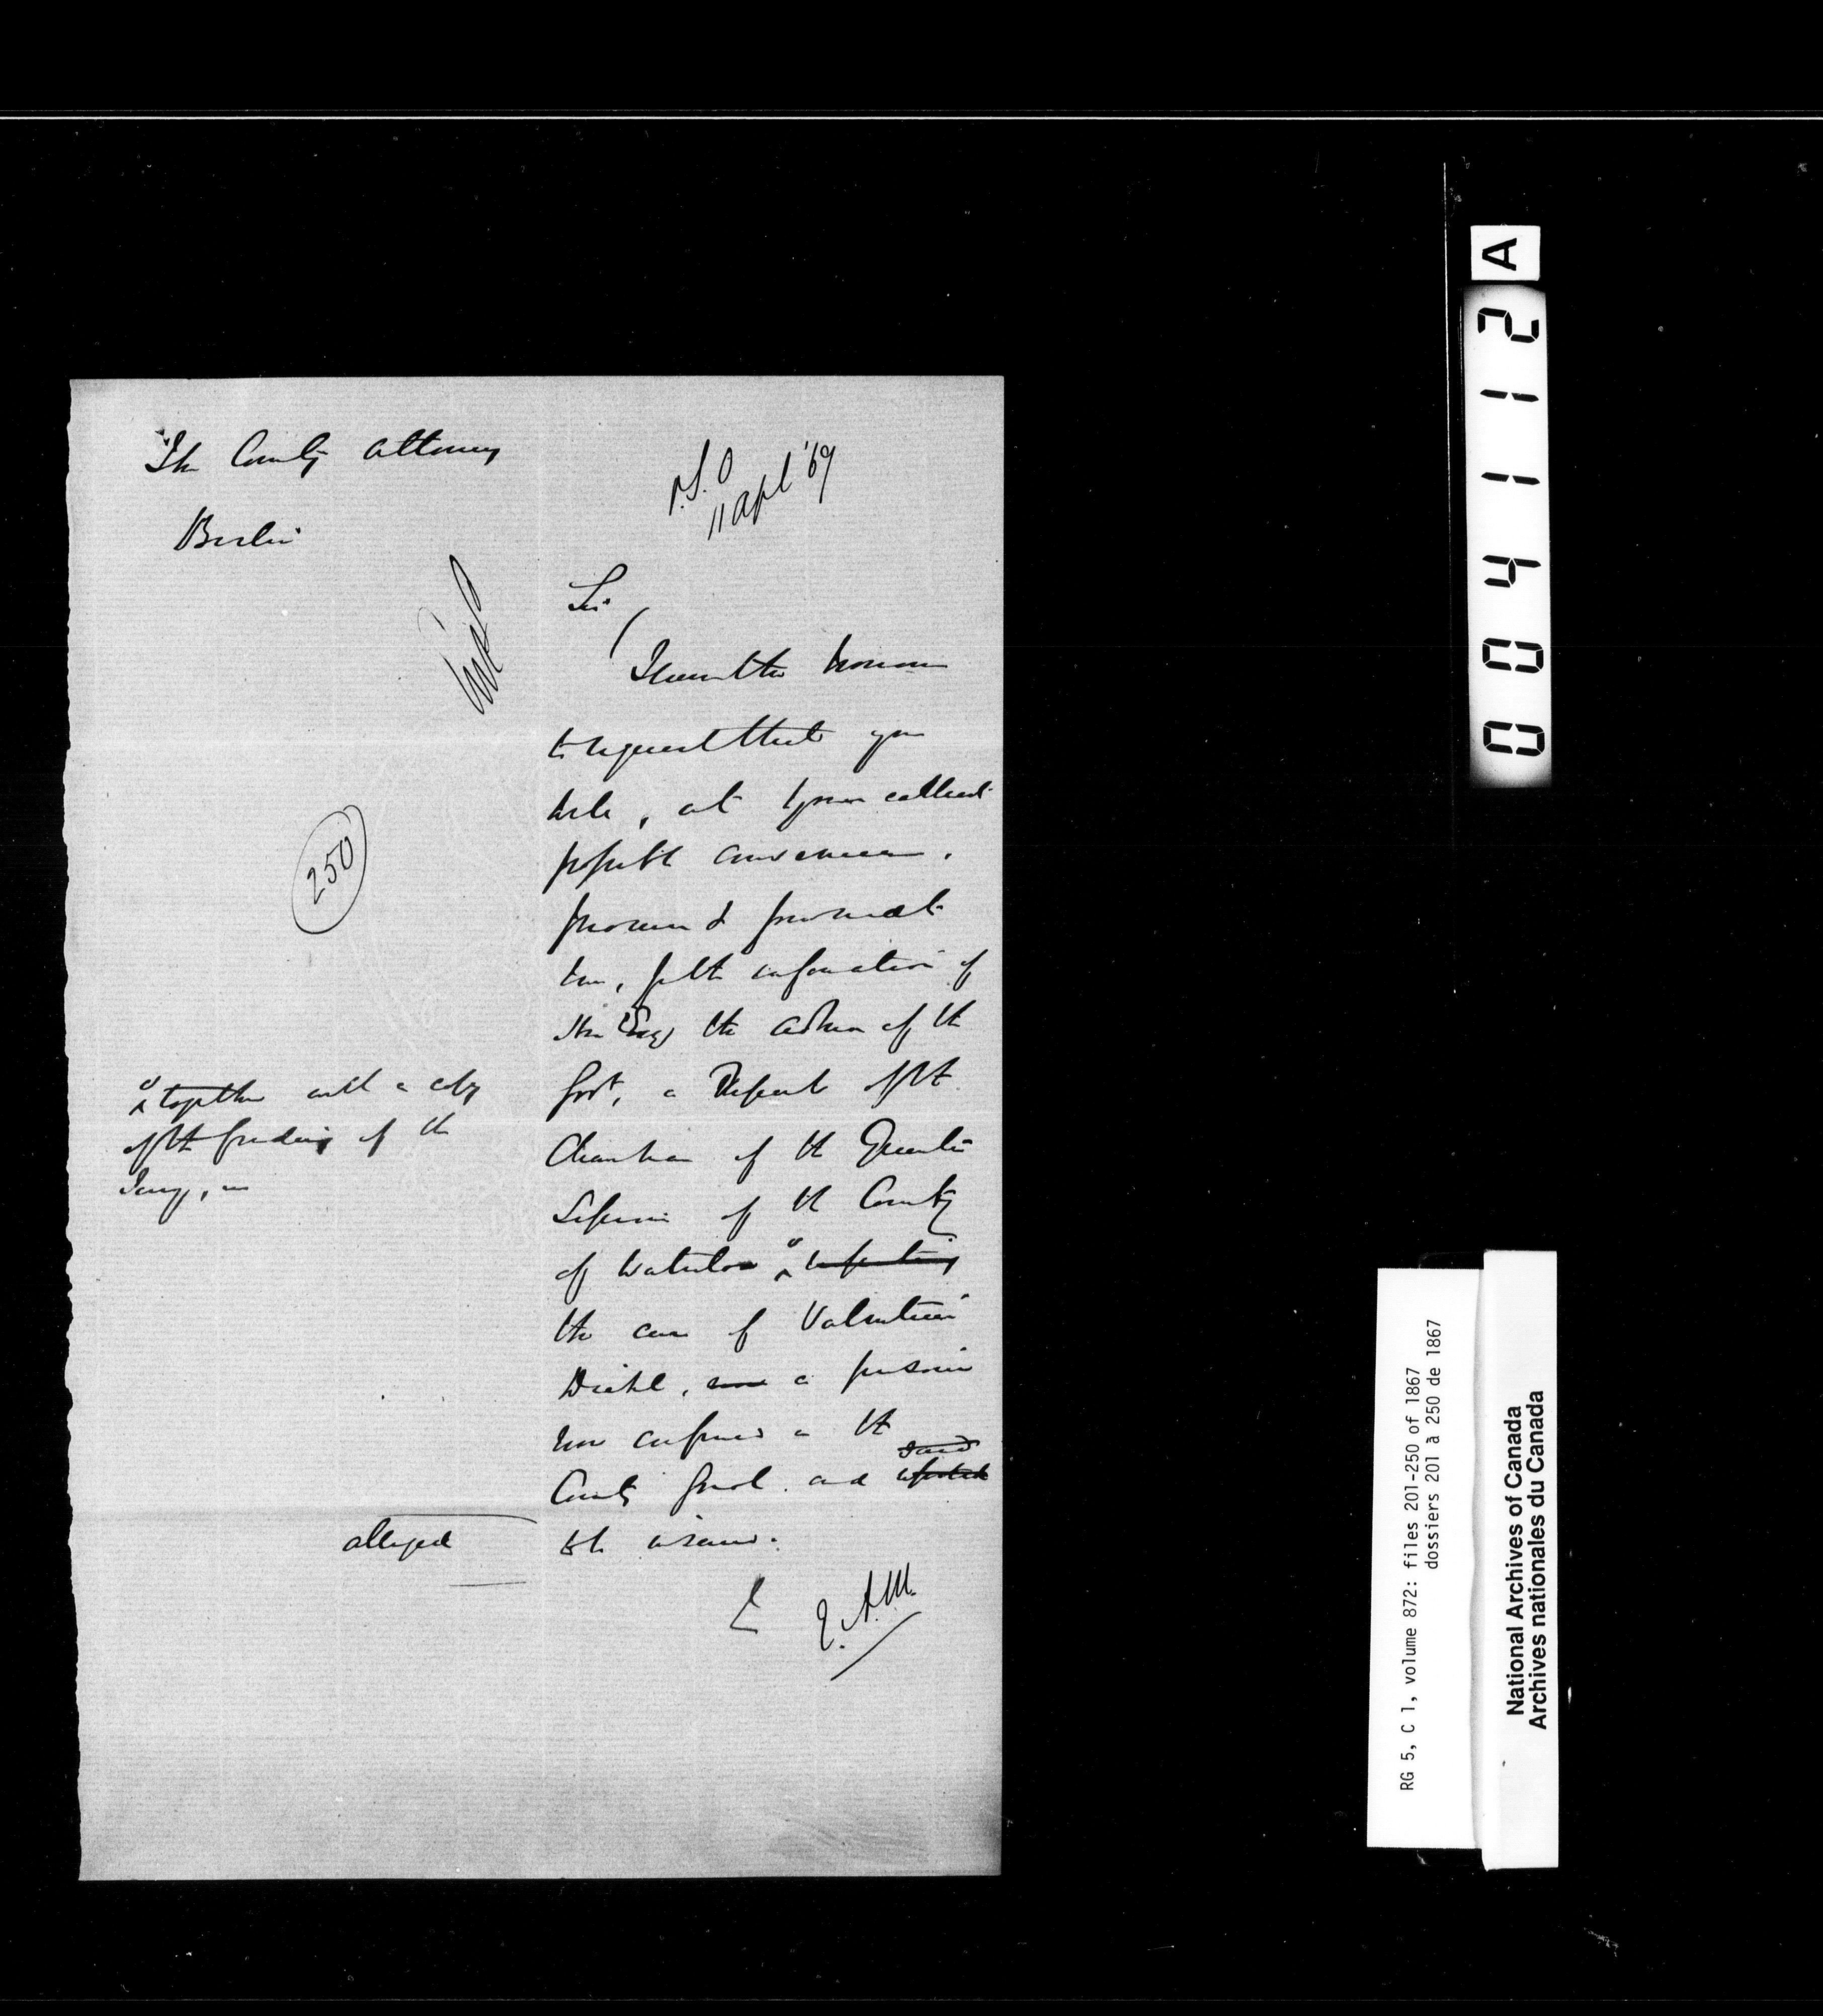 The County Attorney
Berlin
P.S.O
11 Apl '67
Sir
I have the honour
to request that you
will, at your earliest
possible convenience,
procure & transmit
to me, for the information of
His Exc'y the Admr of the
Govt, a Report of the
Chairman of the Quarter
Sessions of the County
of Waterloo
the case of Valentine
Diehl, a prisoner
now confined in the
County Gaol and said
to be insane.
together with a copy
of the finding of the
Jury, in
alleged
250
&
E.A.M.
004112 A
RG 5, C 1, volume 872: files 201-250 of 1867
dossiers 201 à 250 de 1867
National Archives of Canada
Archives nationales du Canada